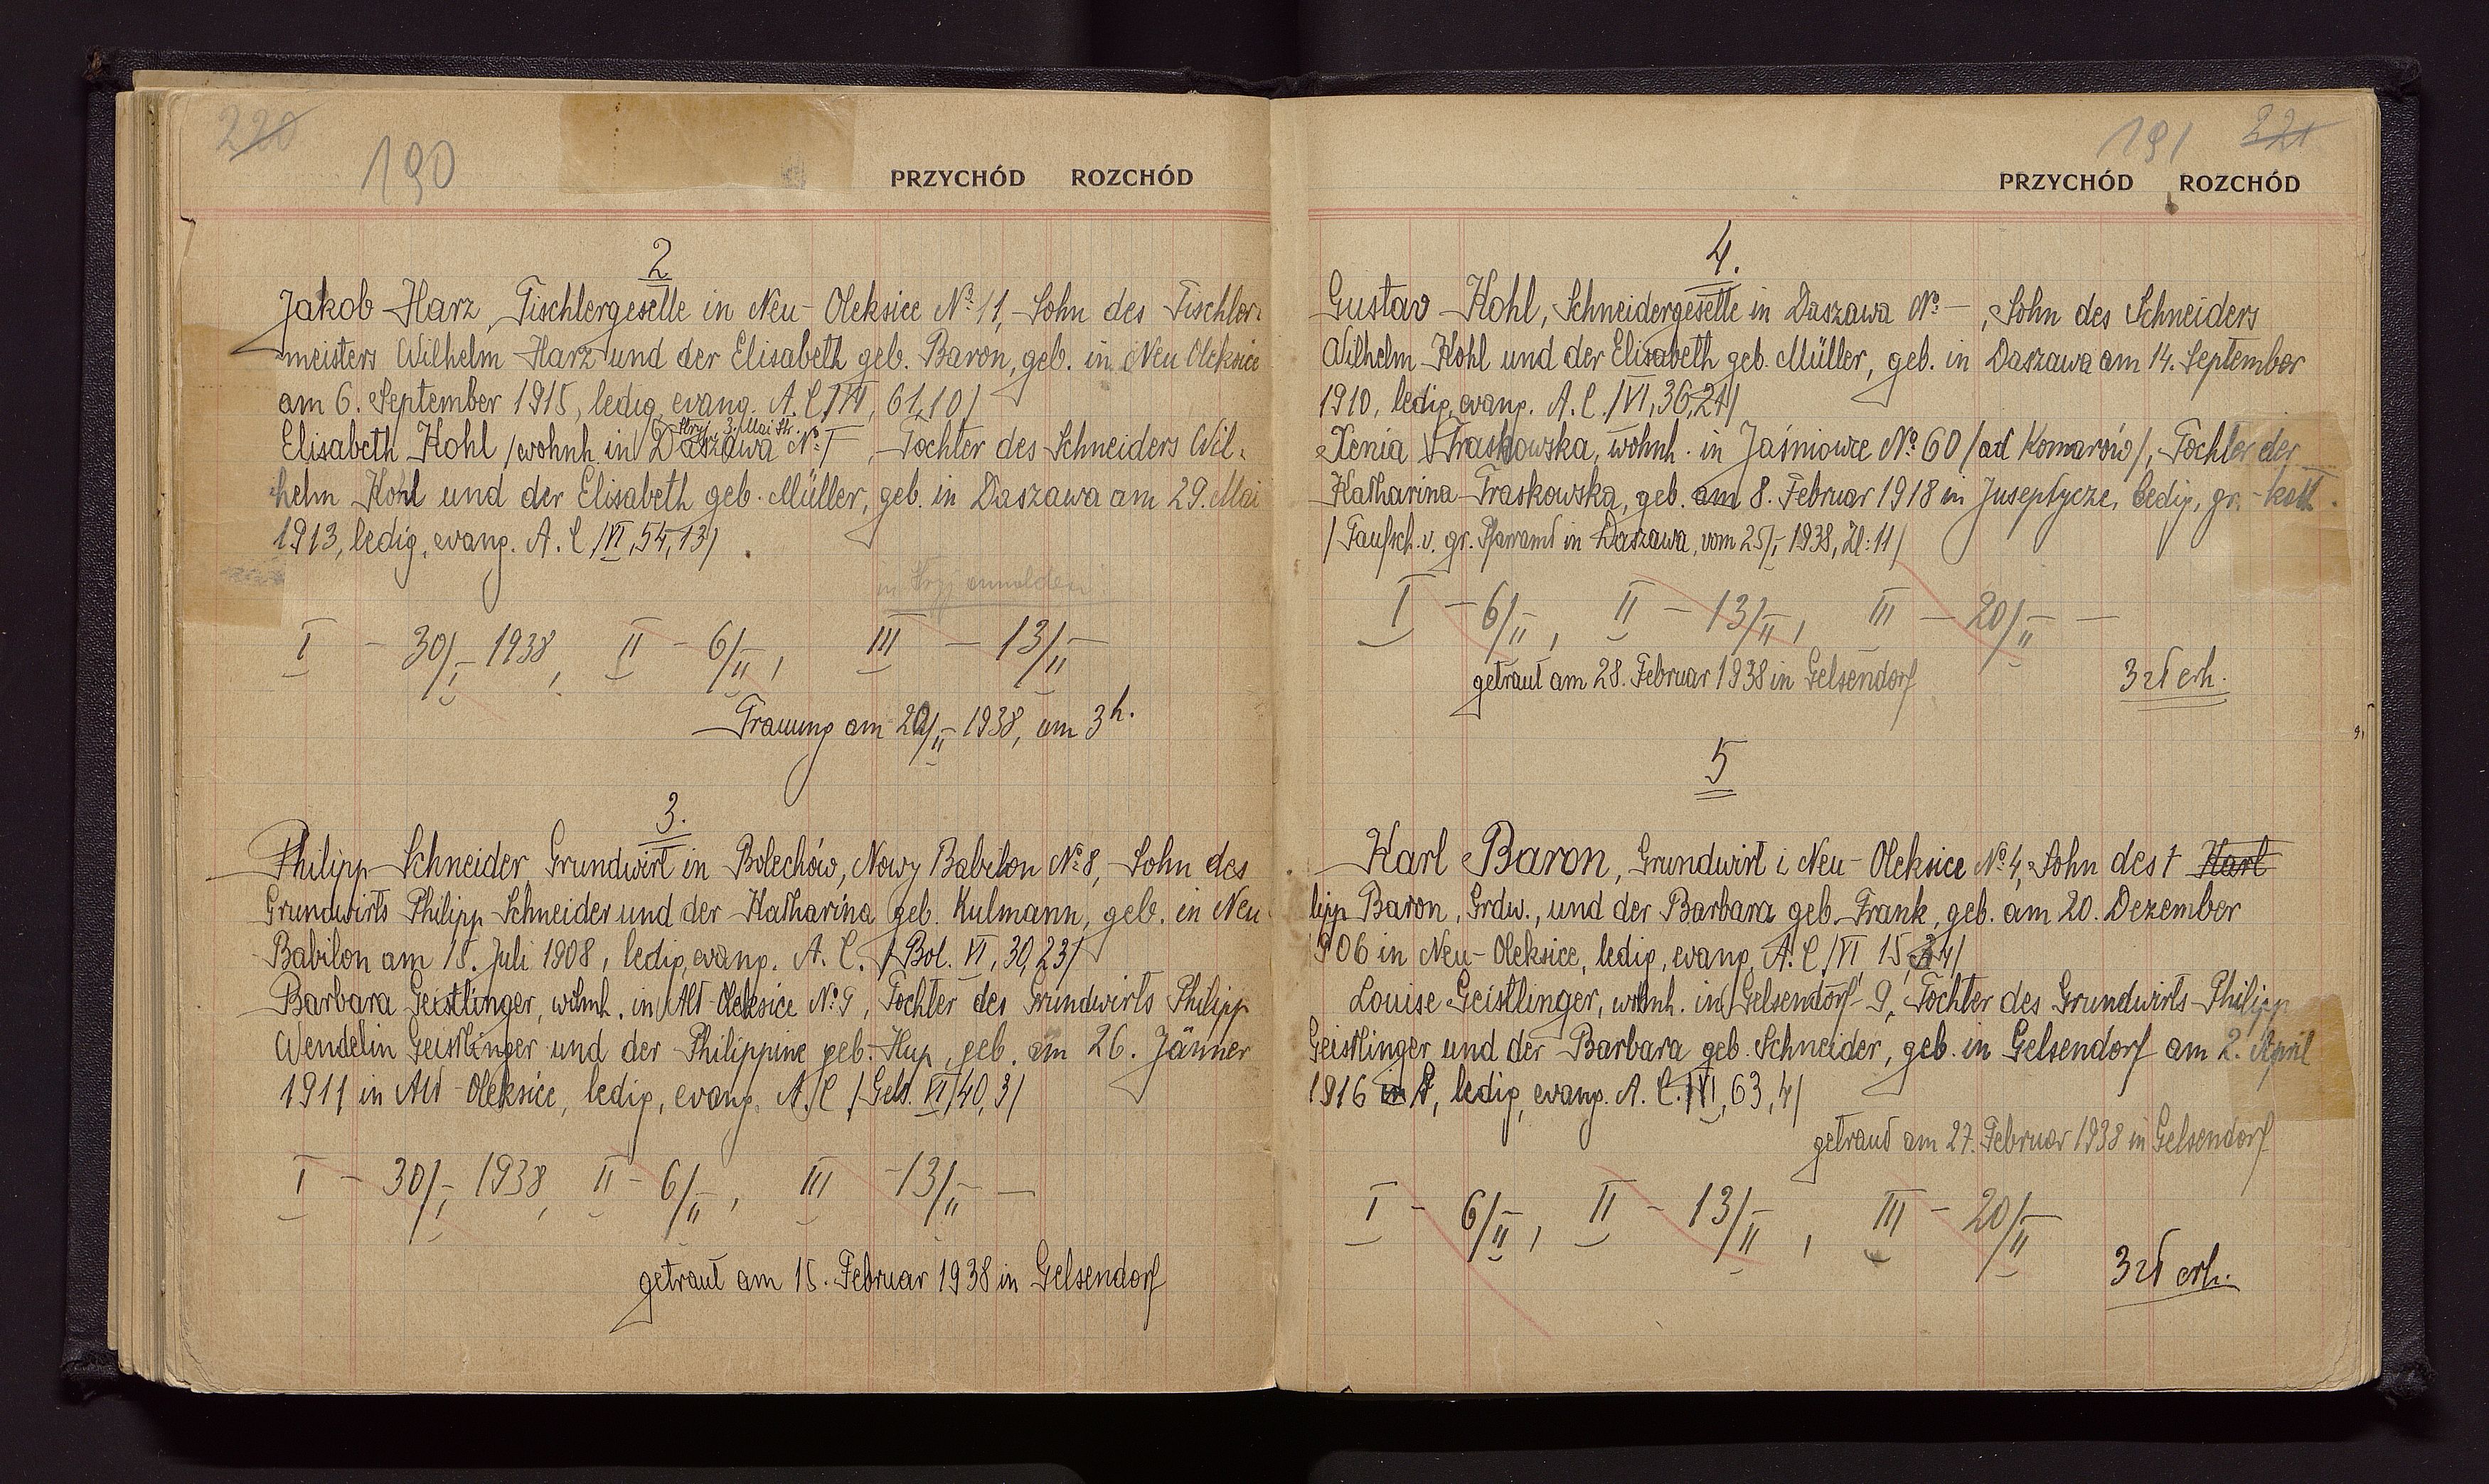 220
190
PRZYCHÓD ROZCHÓD
2
Jakob Harz, Tischlergeselle in Neu-Oleksice No 11, Sohn des Tischler-
meisters Wilhelm Harz und der Elisabeth geb. Baron, geb. in Neu Oleksice
am 6. September 1915, ledig, evang. A. C. /VI, 61,10/
Stryj, 3. Mai Str.
Elisabeth Kohl /wohnh. in Daszawa No -, Tochter des Schneiders Wil-
helm Kohl und der Elisabeth geb. Müller, geb. in Daszawa am 29. Mai
1913, ledig, evang. A. C /VI, 54, 13/
in Stryj anmelden!
I - 30/I 1938, II - 6/II, III - 13/II -
Trauung am 20/II 1938, um 3 h.
3.
Philipp Schneider Grundwirt in Bolechów, Nowy Babilon No 8, Sohn des
Grundwirts Philipp Schneider und der Katharina geb. Kulmann, geb. in Neu
Babilon am 15. Juli 1908, ledig, evang. A. C. /Bol. VI, 30, 23/
Barbara Geistlinger, wohnh. in Alt-Oleksice No 9, Tochter des Grundwirts Philipp
Wendelin Geistlinger und der Philippine geb. Hup, geb. am 26. Jänner
1911 in Alt-Oleksice, ledig, evang. A. C /Gels. VI, 40, 3/
I - 30/I 1938, II - 6/II, III - 13/II -
getraut am 15. Februar 1938 in Gelsendorf
191 221
PRZYCHÓD ROZCHÓD
4.
Gustav Kohl, Schneidergeselle in Daszawa No -, Sohn des Schneiders
Wilhelm Kohl und der Elisabeth geb. Müller, geb. in Daszawa am 14. September
1910, ledig, evang. A. C. /VI, 36, 21/
Xenia Traskowska, wohnh. in Jaśniowce No 60 /ad Komarów/, Tochter der
Katharina Traskowska, geb. am 8. Februar 1918 in Juseptycze, ledig, gr.-kath.
/Taufsch. v. gr. Pfarramt in Daszawa, vom 25/I 1938, Zl: 11/
I - 6/II, II - 13/II, III - 20/II -
getraut am 28. Februar 1938 in Gelsendorf
3 zł erh.
5
Karl Baron, Grundwirt i Neu-Oleksice No 4, Sohn des † Karl
lipp Baron, Grdw., und der Barbara geb. Frank, geb. am 20. Dezember
1906 in Neu-Oleksice, ledig, evang. A. C /VI 15
Louise Geistlinger, wohnh. in Gelsendorf 9, Tochter des Grundwirts Philipp
Geistlinger und der Barbara geb. Schneider, geb. in Gelsendorf am 2. April
1916 in, ledig, evang. A. C. /VI, 63, 4/
getraut am 27. Februar 1938 in Gelsendorf
I - 6/II, II - 13/II, III - 20/II
3 zł erh.